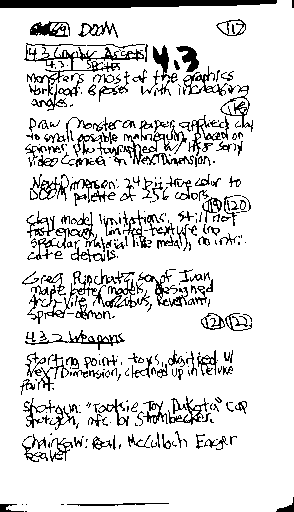 69 DOOM 117
4.3 Graphic Assets 4.3
4.3.1 Sprites
Monsters most of the graphics
workload. 8 poses with increasing
angles.
118
Draw monster on paper, applied clay
to small posable mannequin, placed on
spinner, photographed w/ Hi8 Sony
Video Camera in NeXTDimension.
NextDimension: 24 bit true color to
DOOM palette of 256 colors
119 120
Clay model limitations, still not
fast enough, limited texture (no
specular material like metal), no intri-
cate details.
Greg Punchatz, son of Ivan,
made better models, designed
Arch-Vile, Mancubus, Revenant,
Spider-demon.
121 122
4.3.2 Weapons
Starting point, toys, digitised w/
NeXTDimension, cleaned up in Deluxe
Paint.
Shotgun: "Tootsie Toy Dakota" Cap
Shotgun, mfc. by Strombecker.
Chainsaw: Real, McCulloch Eager
Beaver